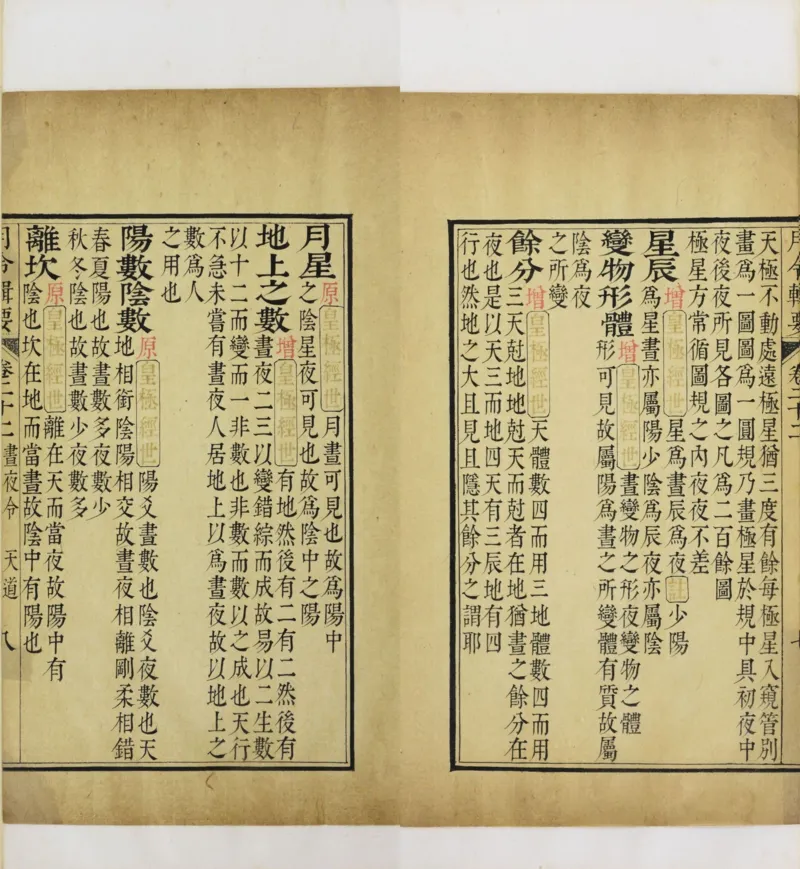 月令輯要 卷二十二 七
天極不動處遠極星猶三度有餘每極星入窺管別
畫爲一圖圖爲一圓規乃畫極星於規中具初夜中
夜後夜所見各圖之凡爲二百餘圖
極星方常循圖規之內夜夜不差
星辰 增 皇極經世 星爲晝辰爲夜 註 少陽
爲星晝亦屬陽少陰爲辰夜亦屬陰
變物形體 增 皇極經世 晝變物之形夜變物之體
形可見故屬陽爲晝之所變體有質故屬
陰爲夜
之所變
餘分 增 皇極經世 天體數四而用三地體數四而用
三天尅地地尅天而尅者在地猶晝之餘分在
夜也是以天三而地四天有三辰地有四
行也然地之大且見且隱其餘分之謂耶
月星 原 皇極經世 月晝可見也故爲陽中
之陰星夜可見也故爲陰中之陽
地上之數 增 皇極經世 有地然後有二有二然後有
晝夜二三以變錯綜而成故易以二生數
以十二而變而一非數也非數而數以之成也天行
不急未嘗有晝夜人居地上以爲晝夜故以地上之
數爲人
之用也
陽數陰數 原 皇極經世 陽爻晝數也陰爻夜數也天
地相銜陰陽相交故晝夜相離剛柔相錯
春夏陽也故晝數多夜數少
秋冬陰也故晝數少夜數多
離坎 原 皇極經世 離在天而當夜故陽中有
陰也坎在地而當晝故陰中有陽也
月令輯要 卷二十二 晝夜令 天道 八